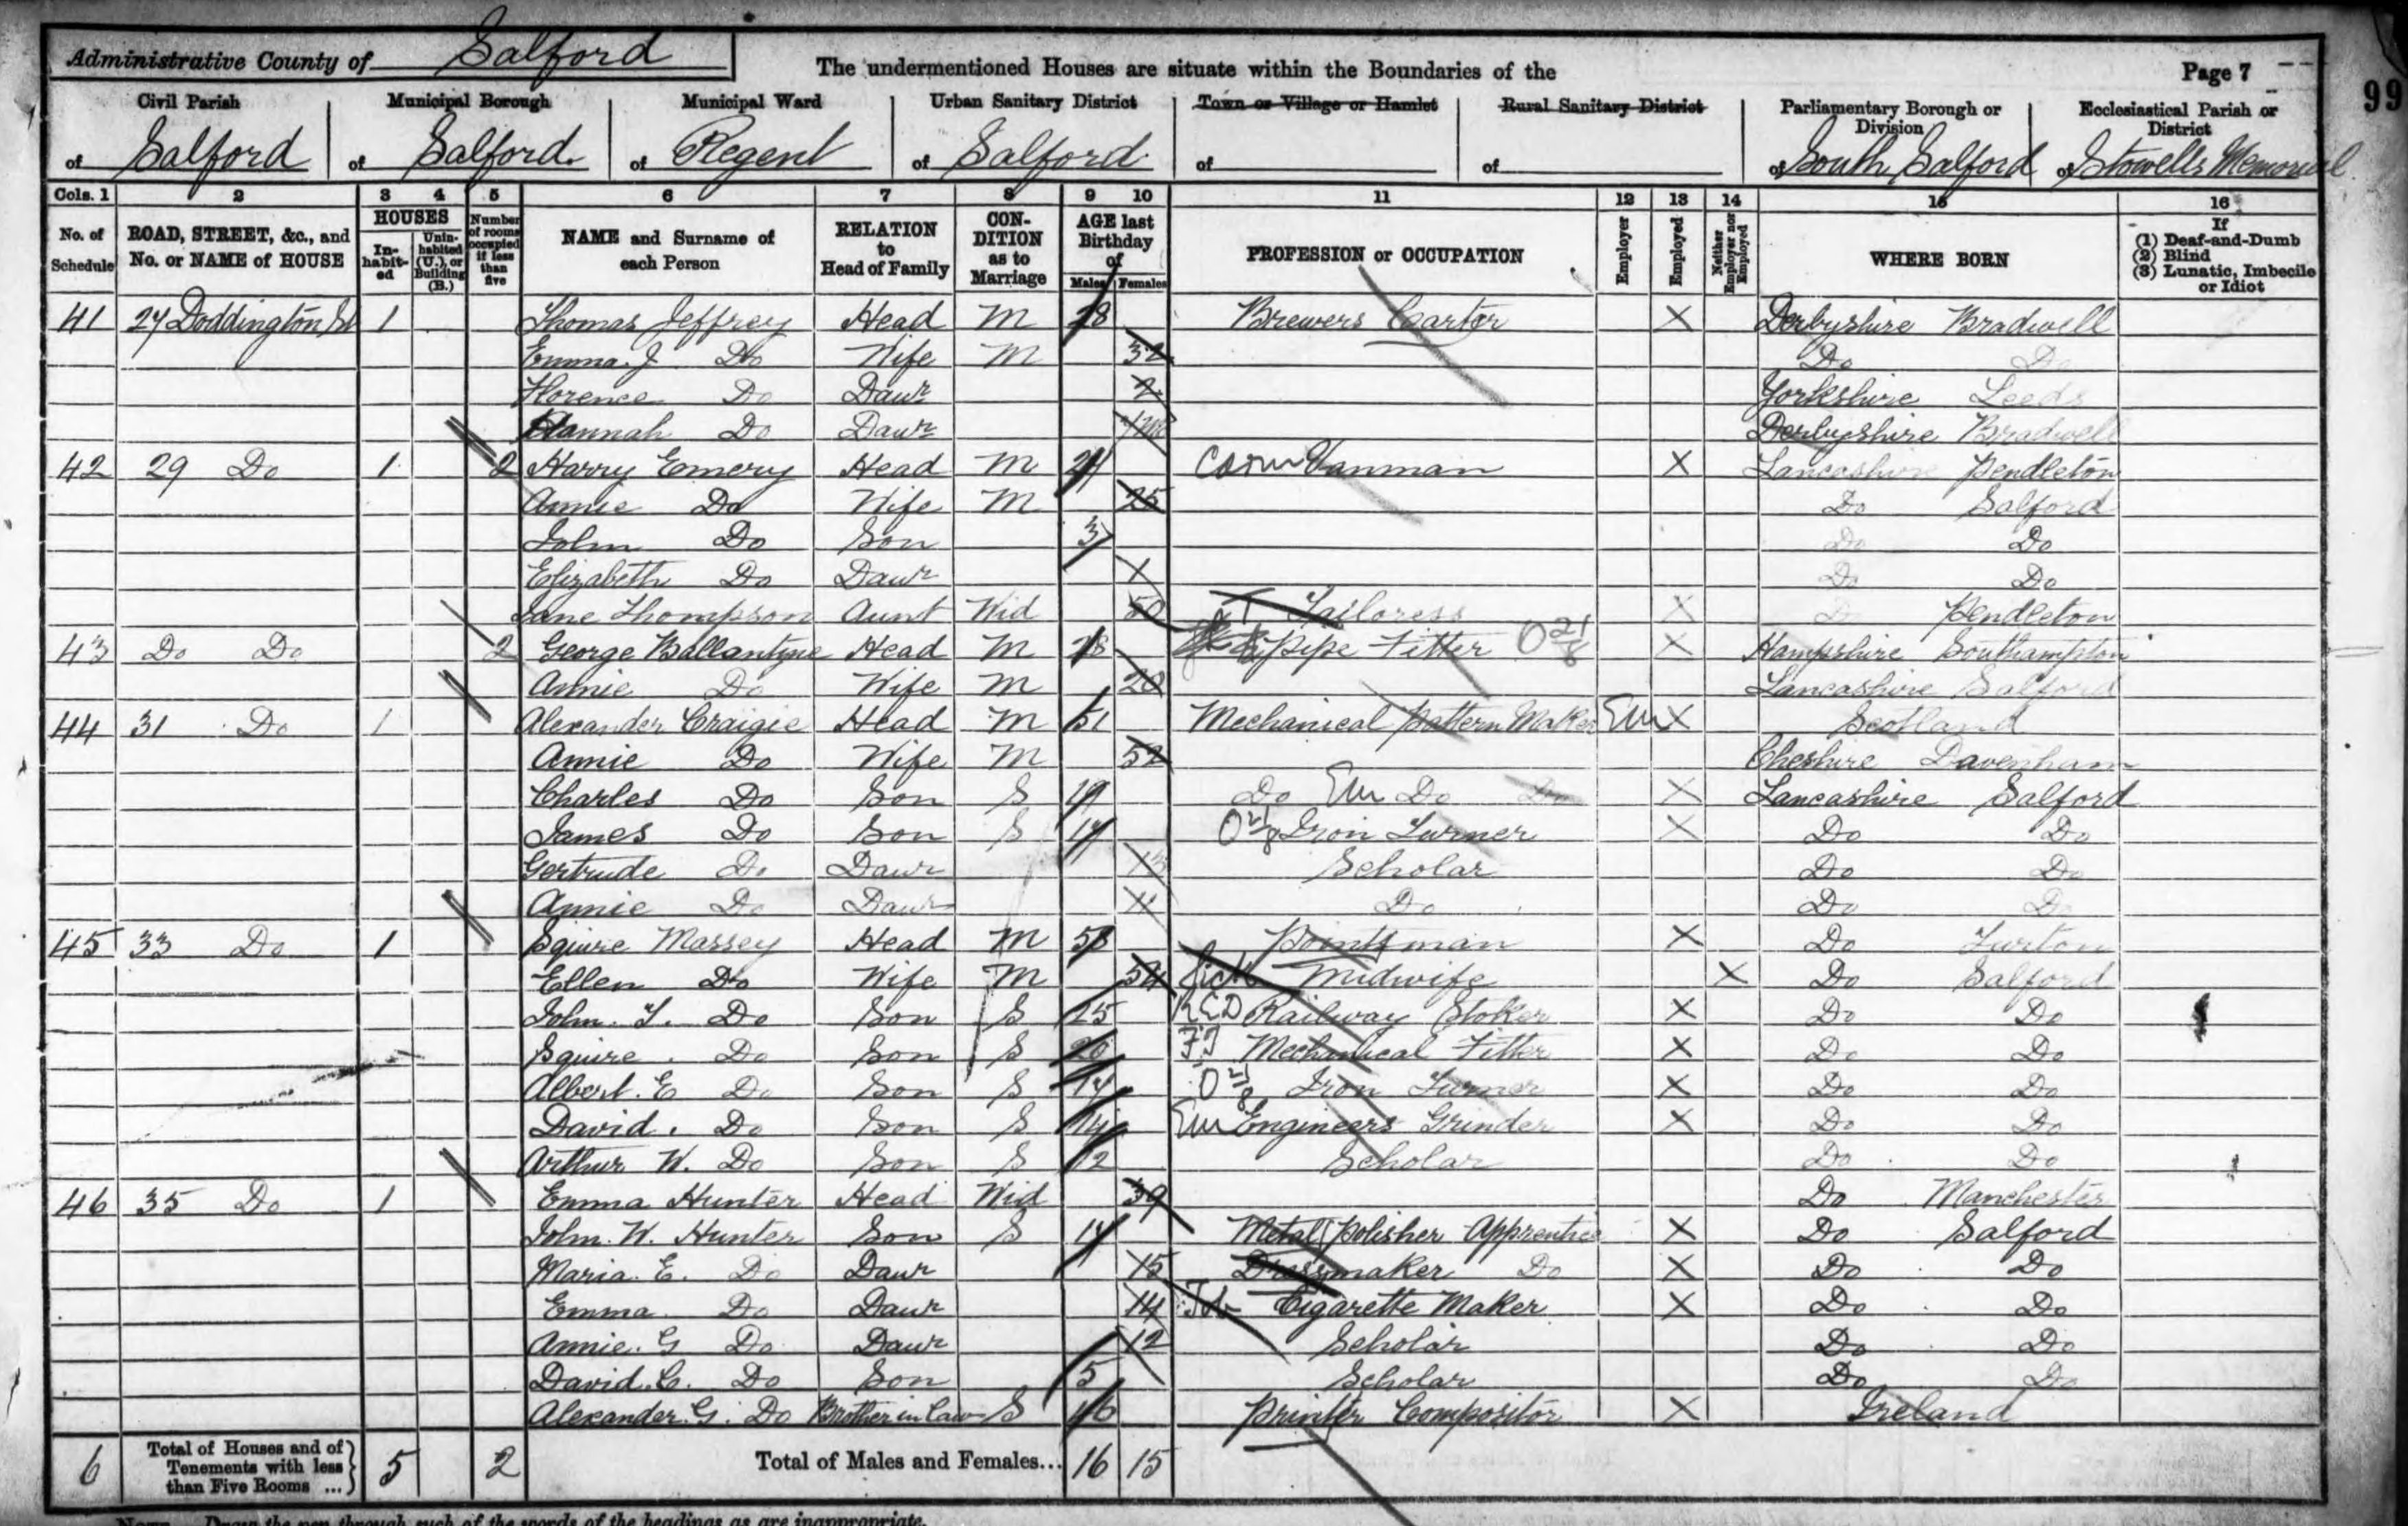 Administrative County of Salford The undermentioned Houses are situate within the Boundaries of the Page 7
99
Civil Parish Municipal Borough Municipal Ward Urban Sanitary District Town or Village or Hamlet Rural Sanitary District Parliamentary Borough or Division Ecclesiastical Parish or District
of Salford of Salford. of Regent of Salford of of of South Salford of Stowells Memorial
Cols. 1 2 3 4 5 6 7 8 9 10 11 12 13 14 15 16
No. of Schedule ROAD, STREET, &c., and No. or NAME of HOUSE HOUSES In-habit-ed Unin-habited (U.), or Building (B.) Number of rooms occupied if less than five NAME and Surname of each Person RELATION to Head of Family CON-DITION as to Marriage AGE last Birthday of Males Females PROFESSION or OCCUPATION Employer Employed Neither Employer nor Employed WHERE BORN If (1) Deaf-and-Dumb (2) Blind (3) Lunatic, Imbecile or Idiot
41 27 Doddington St 1 Thomas Jeffrey Head M 28 Brewers Carter X Derbyshire Bradwell
Emma. J Do Wife M 32 Do Do
Florence Do Daur 2 Yorkshire Leeds
Hannah Do Daur Derbyshire Bradwell
42 29 Do 1 2 Harry Emery Head M Corn Vanman X Lancashire Pendleton
Annie Do Wife M 25 Do Salford
John Do Son 3 Do Do
Elizabeth Do Daur 1 Do Do
Jane Thompson Aunt Wid 50 T Tailoress X Do Pendleton
43 Do Do 2 George Ballantyne Head M 28 Pipe Fitter O 21/8 X Hampshire Southampton
Annie Do Wife M 20 Lancashire Salford
44 31 Do 1 Alexander Craigie Head M 51 Mechanical Pattern Maker Em X Scotland
Annie Do Wife M 52 Cheshire Davenham
Charles Do Son S 19 Do Em Do Do X Lancashire Salford
James Do Son S 17 O 21/8 Iron Turner X Do Do
Gertrude Do Daur 13 Scholar Do Do
Annie Do Daur 11 Do Do Do
45 33 Do 1 Squire Massey Head M 58 Pointsman X Do Turton
Ellen Do Wife M 54 Sick Midwife X Do Salford
John. T. Do Son S 25 RED Railway Stoker X Do Do
Squire. Do Son S 20 FT Mechanical Fitter X Do Do
Albert. E Do Son S 17 O 21/8 Iron Turner X Do Do
David. Do Son S 14 Em Engineers Grinder X Do Do
Arthur W. Do Son S 12 Scholar Do Do
46 35 Do 1 Emma Hunter Head Wid 39 Do Manchester
John. W. Hunter Son S 17 Metal Polisher Apprentice X Do Salford
Maria. E. Do Daur 15 Dressmaker Do X Do Do
Emma Do Daur 14 Tob Cigarette Maker X Do Do
Annie. G Do Daur 12 Scholar Do Do
David. C. Do Son 5 Scholar Do Do
Alexander. G. Do Brother in Law S 16 Printer Compositor X Ireland
6 Total of Houses and of Tenements with less than Five Rooms ... 5 2 Total of Males and Females... 16 15
NOTE.—Draw the pen through such of the words of the headings as are inappropriate.